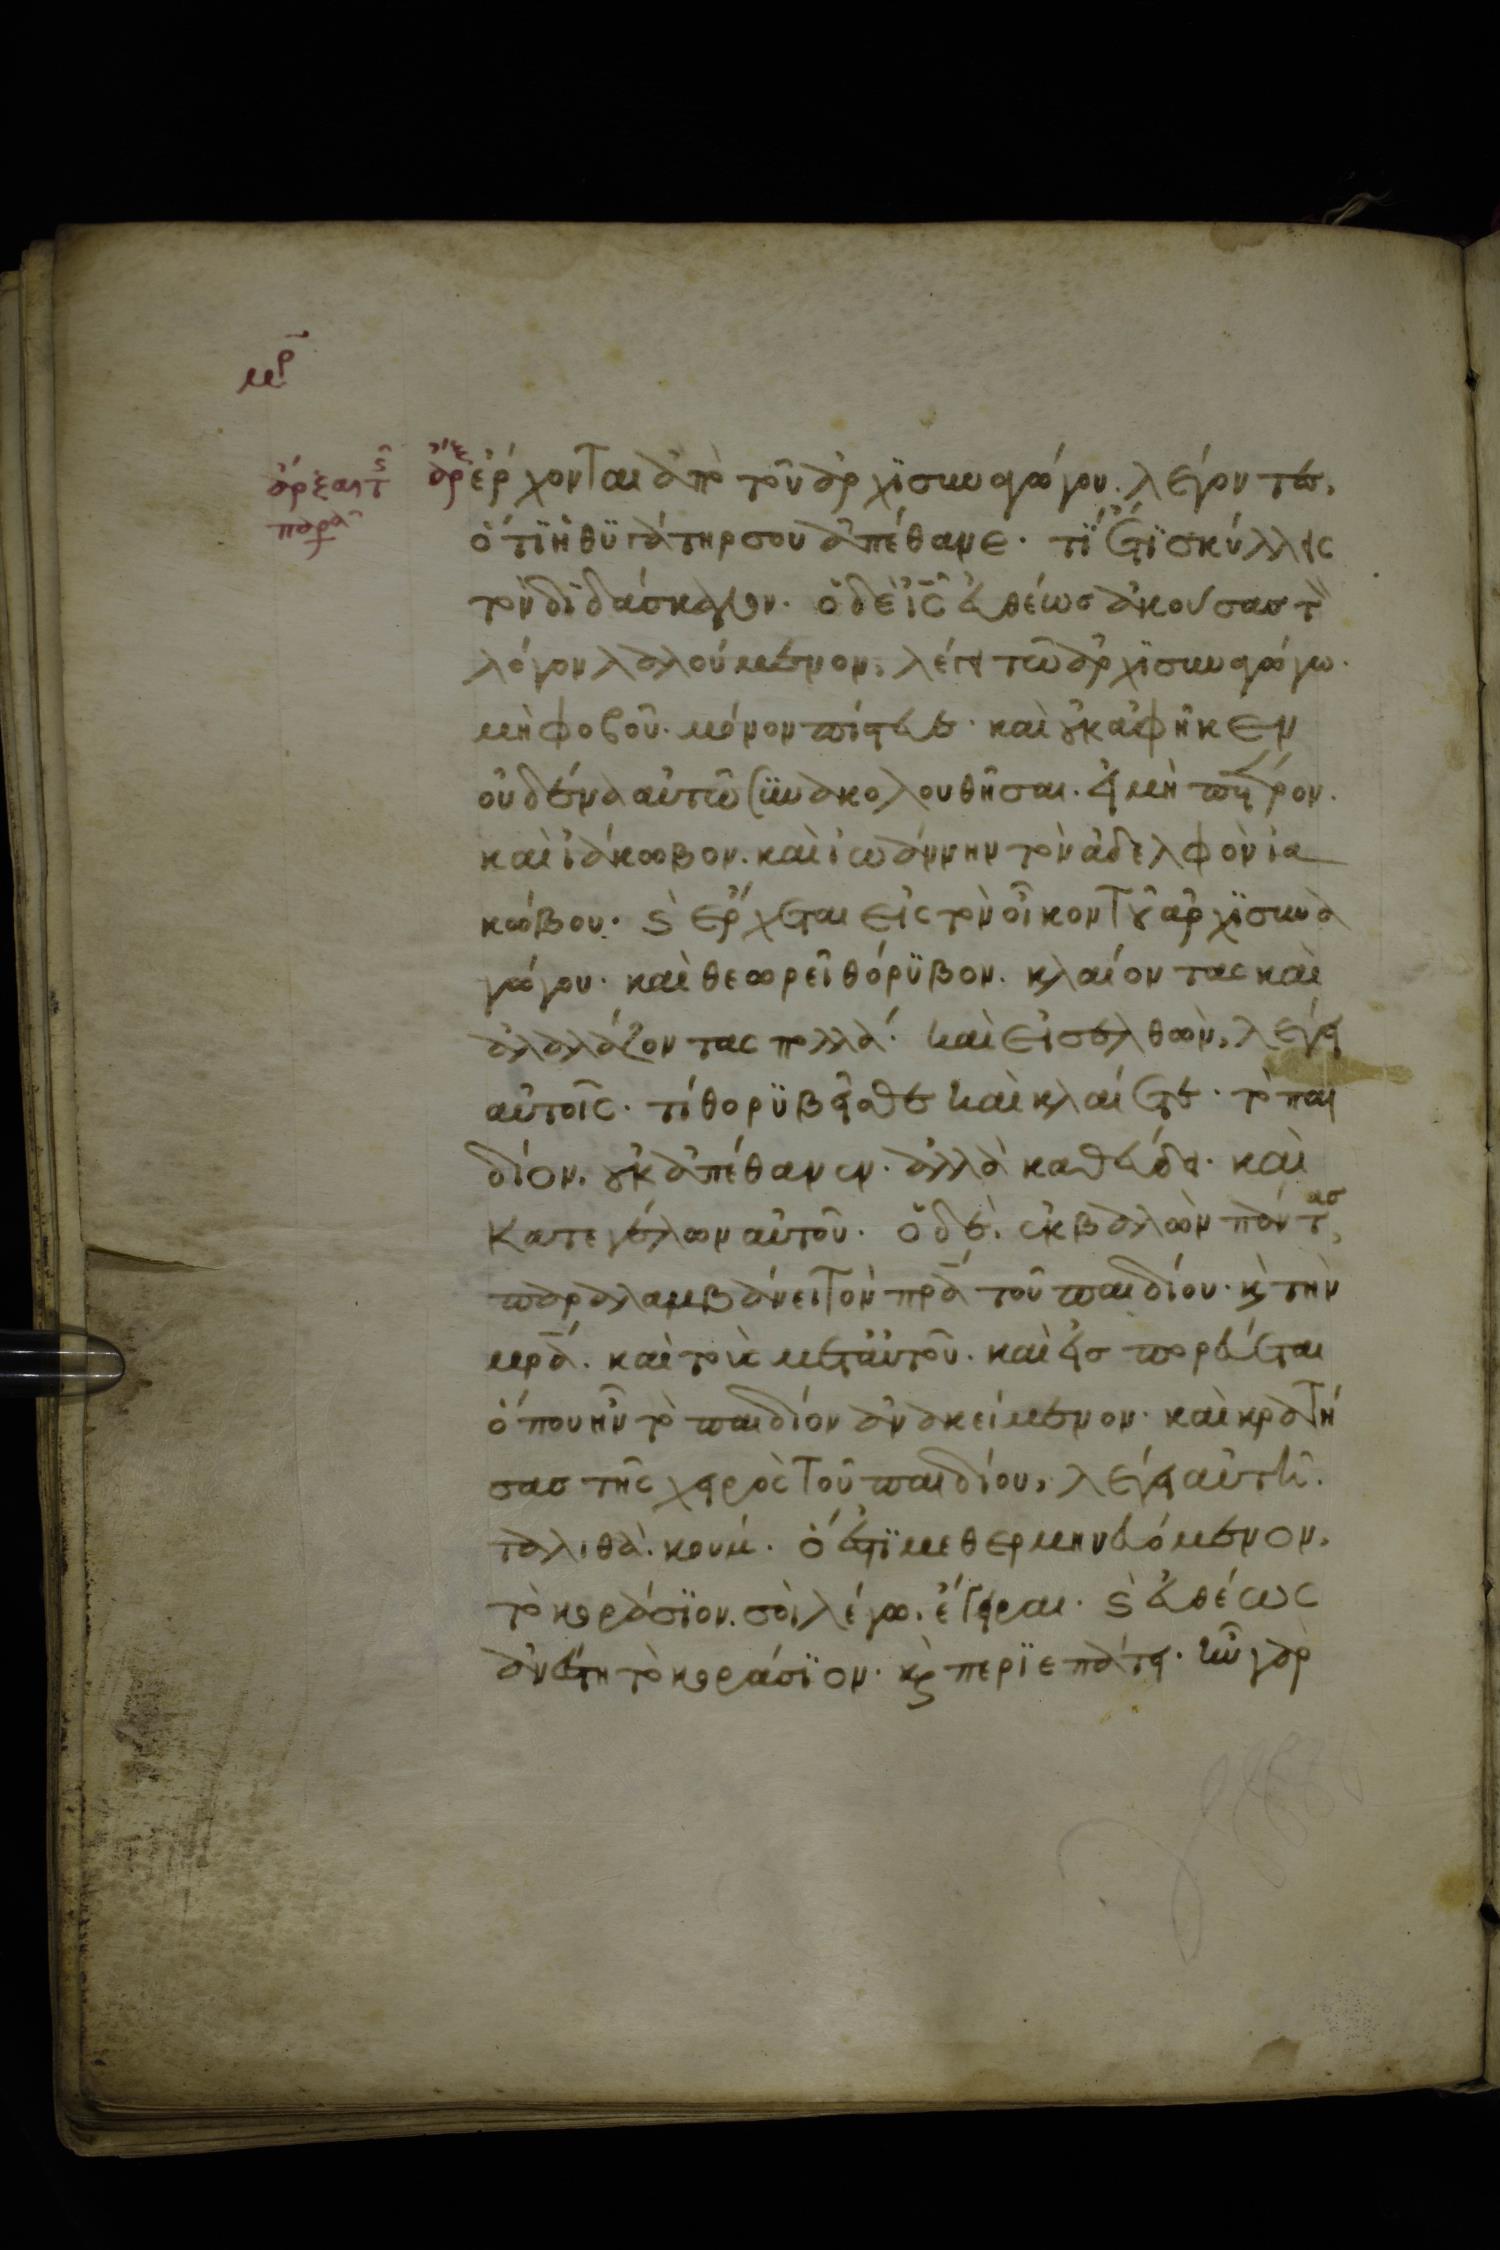 ἔρχονται ἀπὸ τοῦ ἀρχϊσυναγώγου. λέγοντες,
ὅτϊ ἡ θϋγάτηρ σου ἀπέθανε· τί ἔτϊ σκύλλεις
τὸν διδάσκαλον. ὁ δὲ ἰς εὐθέως ἀκούσας τὸν
λόγον λαλούμενον, λέγει τῶ ἀρχϊσυναγώγω.
μὴ φοβοῦ. μόνον πίστευε· καὶ οὐκ ἀφῆκεν
οὐδένα αὐτῶ συνακολουθῆσαι. εἰ μὴ πέτρον.
καὶ ἰάκωβον. καὶ ἰωάννην τὸν ἀδελφὸν ἰα
κώβου· καὶ ἔρχεται εἰς τὸν οἶκον τοῦ ἀρχϊσυνα
γώγου· καὶ θεωρεῖ θόρϋβον. κλαίοντας καὶ
ἀλαλάζοντας πολλά· καὶ εἰσελθὼν, λέγει
αὐτοῖς· τί θορϋβεῖσθε καὶ κλαίετε· τὸ παι
δίον, οὐκ ἀπέθανεν· ἀλλὰ καθεύδει· καὶ
κατεγέλων αὐτοῦ· ὁ δὲ, ἐκβαλὼν πάντας,
παραλαμβάνει τὸν πρα τοῦ παιδίου· καὶ τὴν
μρα. καὶ τοὺς μετ' αὐτοῦ. καὶ εἰσπορεύεται
ὅπου ἦν τὸ παιδίον ἀνακείμενον· καὶ κρατή
σας τῆς χειρὸς τοῦ παιδίου, λέγει αὐτῆ.
ταλιθὰ. κουμ. ὅ ἐστϊ μεθερμηνευόμενον,
τὸ κοράσϊον. σοὶ λέγω, ἔγειραι. καὶ εὐθέως
ἀνέστη τὸ κοράσϊον. καὶ περϊεπάτει. ἦν γὰρ